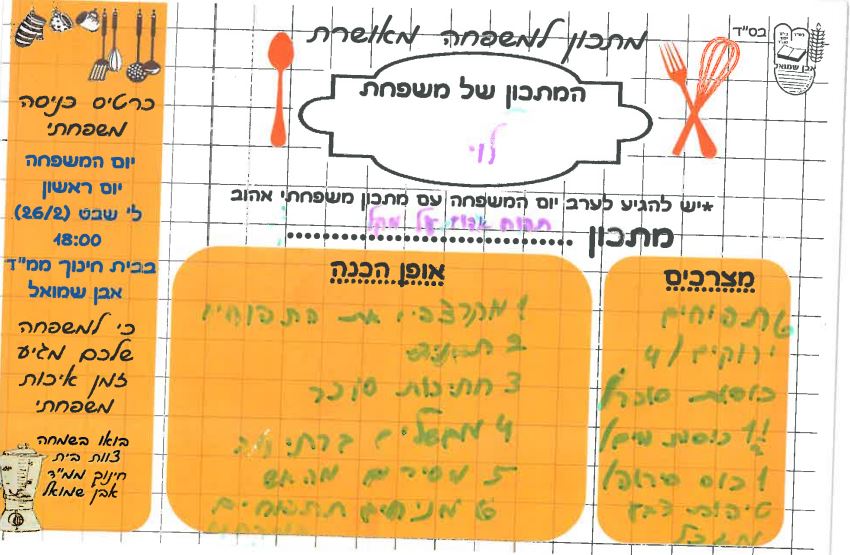 בס"ד
אבן שמואל
מתכון למשפחה מאושרת
המתכון של משפחת
לוי
*יש להגיע לערב יום המשפחה עם מתכון משפחתי אהוב
תפוח אדום על מקל
מתכון
מצרכים
תפוחים
ירוקים /4
כוסות סוכר/
1 כוסות מים/
1 כוס סירופ/
טיפות צבע
מאכל
אופן הכנה
1 מקלפים את התפוחים
2
3 סוכר
4 מבשלים
5 מסירים מהאש
6 מניחים תתפוחים
כרטיס כניסה
משפחתי
יום המשפחה
יום ראשון
ל' שבט (26/2)
18:00
בבית חינוך ממ"ד
אבן שמואל
כי למשפחה
שלכם מגיע
זמן איכות
משפחתי
בואו בשמחה
צוות בית
חינוך ממ"ד
אבן שמואל